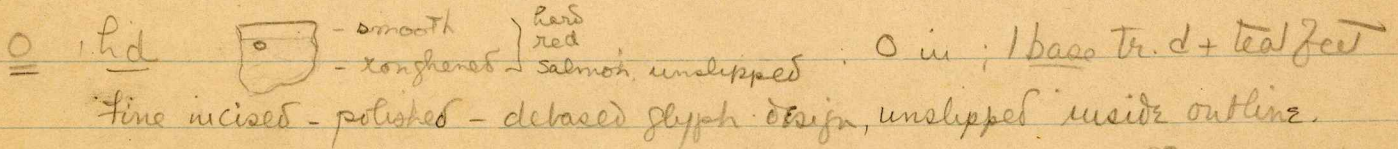 O 1 hd - smooth - roughened } hard red salmon, unslipped. O in ; 1 base Tr. d + teat feet
Fine incised - polished - debased glyph design, unslipped inside outline.